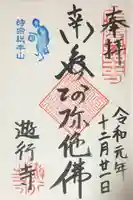 奉拝
令和元年
十二月廿一日
時宗総本山
南無阿弥陀佛
遊行寺